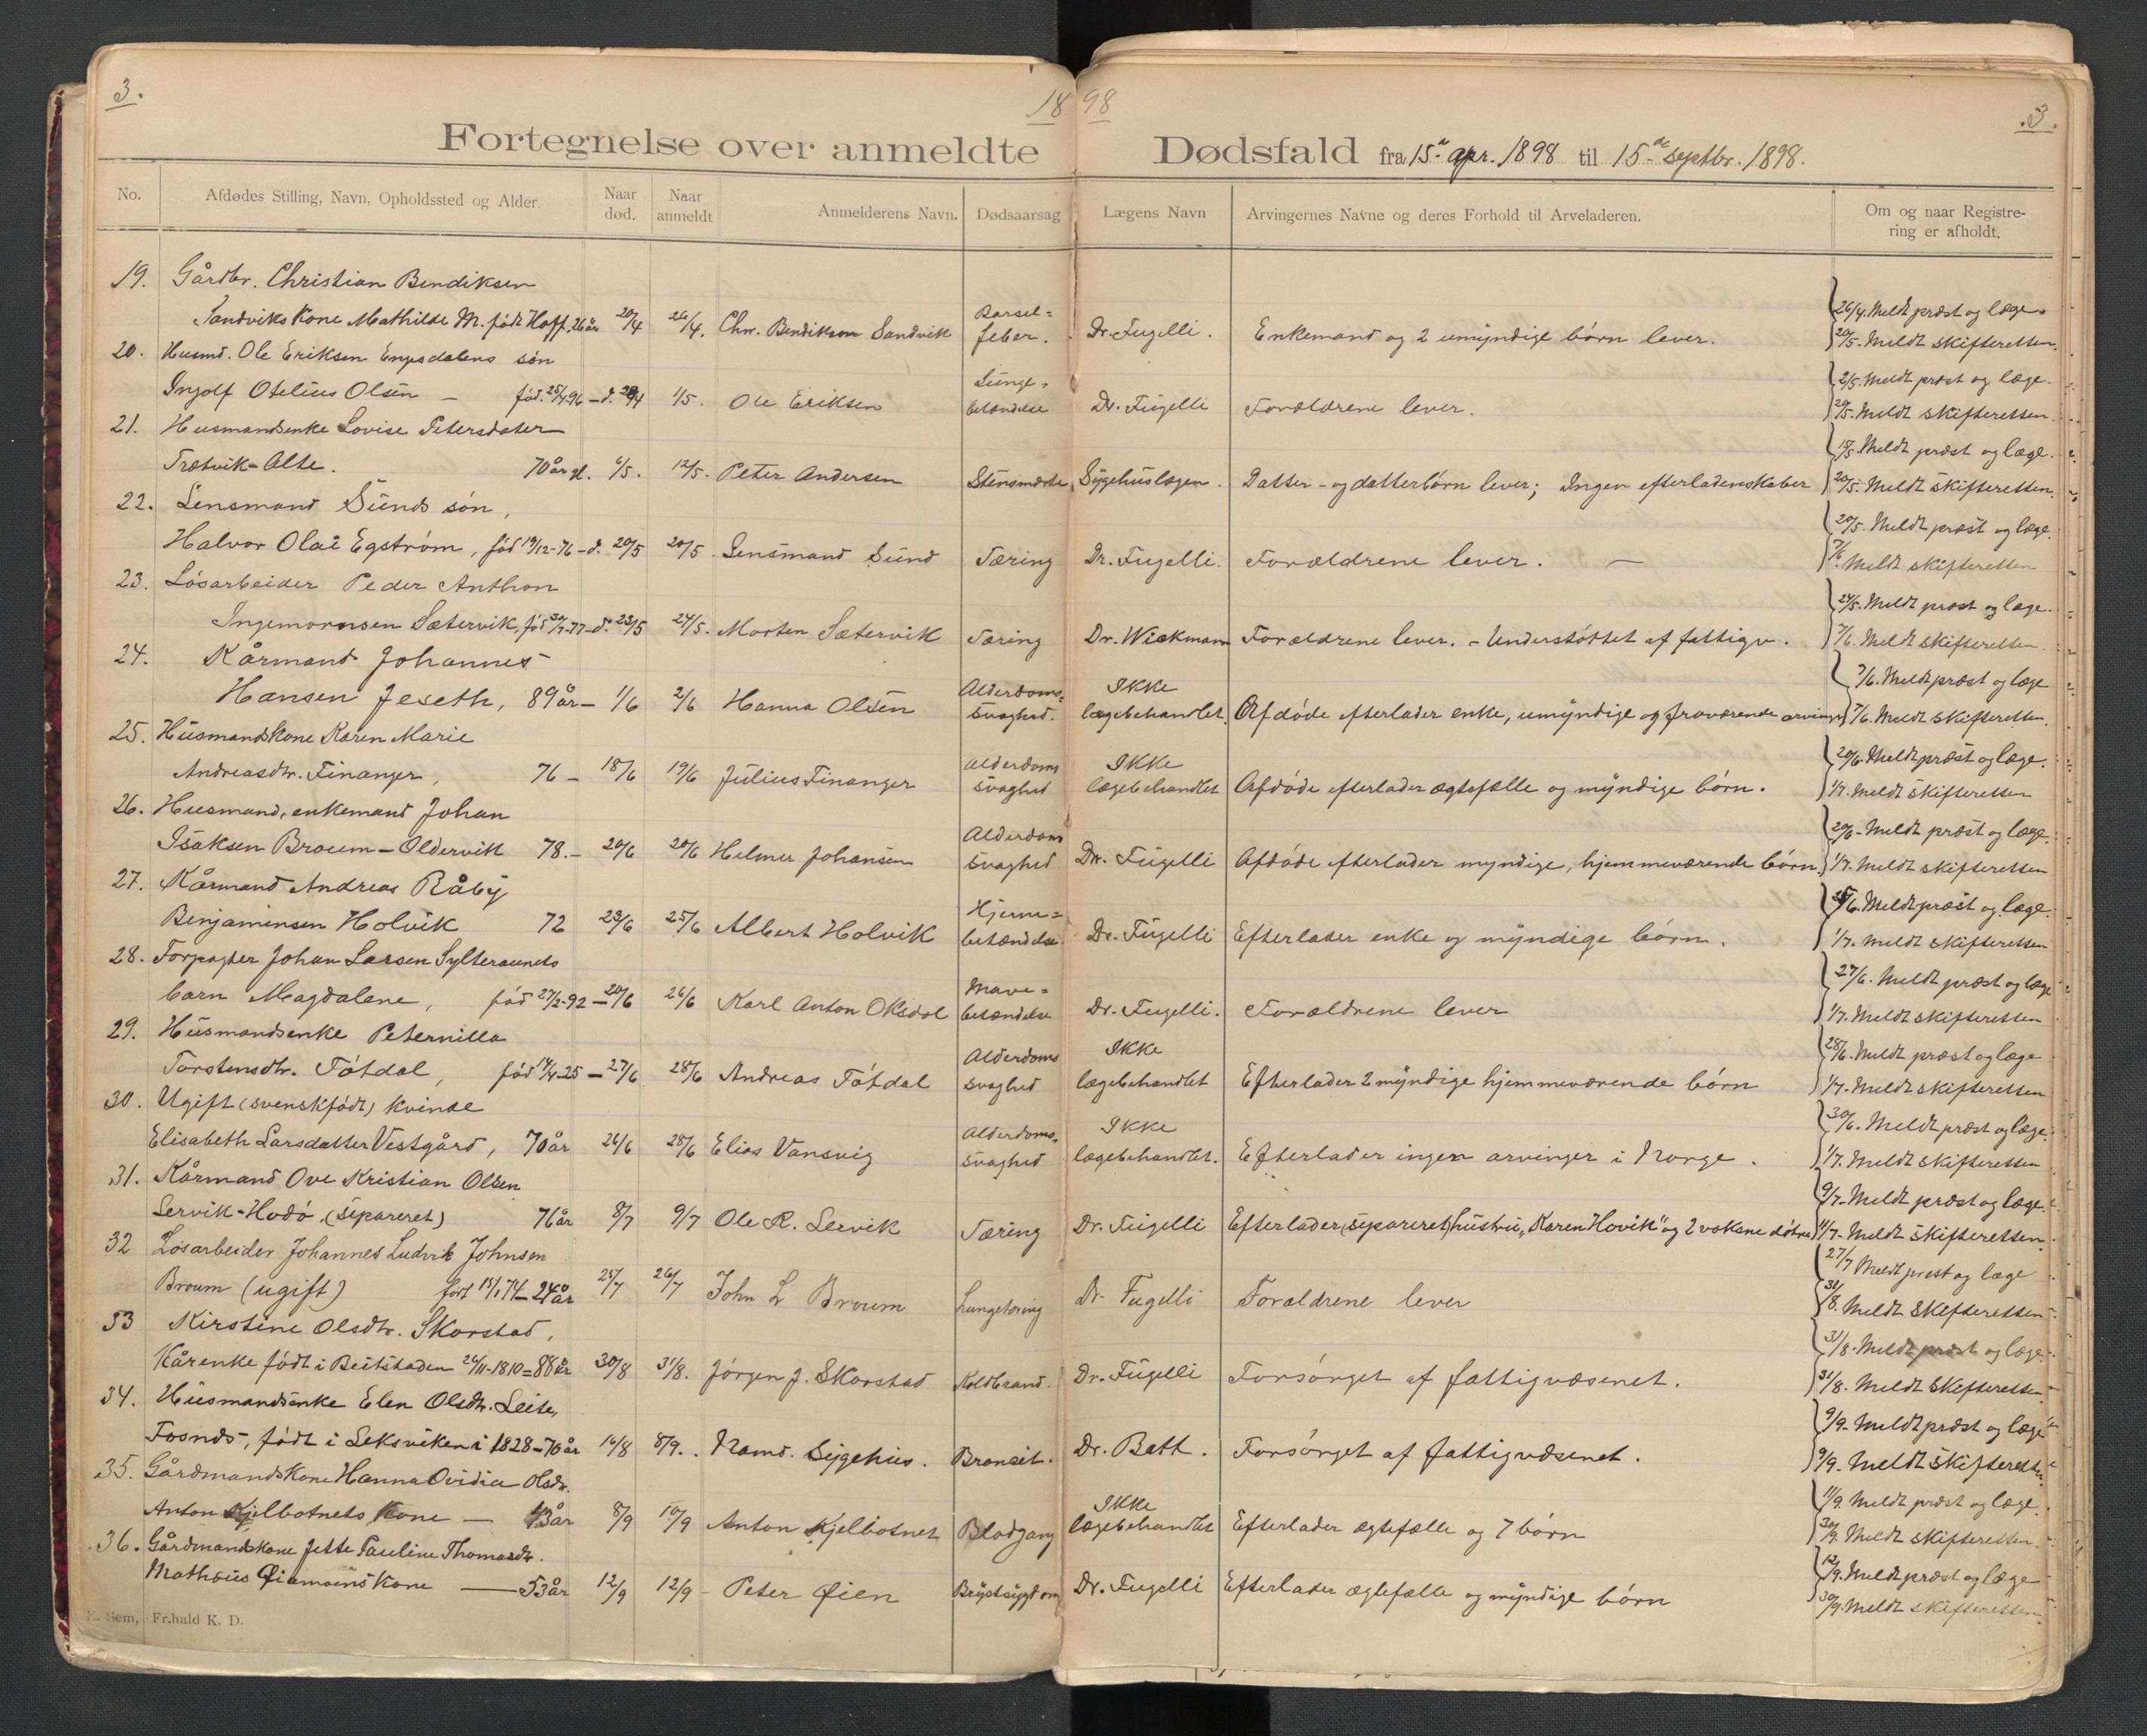 3.
18 98
.3.
Fortegnelse over anmeldte Dødsfald fra 15de apr. 1898 til 15de septbr. 1898.
No. Afdødes Stilling, Navn, Opholdssted og Alder. Naar død. Naar anmeldt Anmelderens Navn. Dødsaarsag Lægens Navn Arvingernes Navne og deres Forhold til Arveladeren. Om og naar Registrering er afholdt.
19. Gårdbr. Christian Bendiksen
Sandviks Kone Mathilde M. født Hoff, 26 år 20/4 26/4. Chr. Bendiksen Sandvik Barsel=feber. Dr. Fugelli. Enkemand og 2 umyndige børn lever. 26/4. Meldt præst og læge.
20/5. Meldt skifteretten.
20. Husmd. Ole Eriksen Engsdalens søn
Ingolf Otelius Olsen — fød. 25/4-96 – d. 29/4 1/5. Ole Eriksen Lunge=betændelse Dr. Fugelli Forældrene lever. 2/5. Meldt præst og læge.
20/5. Meldt skifteretten.
21. Husmandsenke Lovise Petersdater
Trætvik-Alte. 70 år gl. 6/5. 12/5. Peter Andersen Stensmerte Sygehuslægen. Datter- og datterbørn lever; Ingen efterladenskaber Meldt præst og læge.
20/5. Meldt skifteretten.
22. Lensmand Sunds søn,
Halvor Olai Egstrøm, fød 19/12-76 – d. 20/5 20/5. Lensmand Sund Tæring Dr. Fugelli. Forældrene lever. — 20/5. Meldt præst og læge.
7/6. Meldt skifteretten
23. Løsarbeider Peder Anthon
Ingemornsen Sætervik, fød 30/7-77 – d. 23/5 24/5. Morten Sætervik Tæring Dr. Wickmann Forældrene lever. – Understøttet af fattigv. 24/5. Meldt præst og læge.
7/6. Meldt skifteretten.
24. Kårmand Johannes
Hansen Jeseth, 89 år – 1/6 2/6 Hanna Olsen Alderdoms=svaghed. Ikke lægebehandlet. Afdøde efterlader enke, umyndige og fraværende arvinger 3/6. Meldt præst og læge
7/6. Meldt skifteretten.
25. Husmandskone Karen Marie
Andreasdtr. Finanger, 76 – 18/6 19/6 Julius Finanger Alderdoms svaghed Ikke lægebehandlet Afdøde efterlader ægtefælle og myndige børn. 20/6. Meldt præst og læge.
1/7. Meldt skifteretten
26. Husmand, enkemand Johan
Isaksen Broum – Oldervik 78. – 20/6 20/6 Helmer Johansen Alderdoms svaghed Dr. Fugelli Afdøde efterlader myndige, hjemmeværende børn. 20/6 – Meldt præst og læge.
1/7. Meldt skifteretten
27. Kårmand Andreas Råby
Benjaminsen Holvik 72 23/6 25/6 Albert Holvik Hjerne=betændelse. Dr. Fugelli Efterlader enke og myndige børn. 25/6. Meldt præst og læge.
1/7. Meldt skifteretten
28. Forpagter Johan Larsen Sylteraunets
barn Magdalene, fød 27/2-92 – 20/6 26/6 Karl Anton Oksdal Mave=betændelse Dr. Fugelli. Forældrene lever 27/6. Meldt præst og læge
1/7. Meldt skifteretten
29. Husmandsenke Peternilla
Torstensdtr. Tøtdal, fød 14/4-25 – 27/6 28/6 Andreas Tøtdal Alderdoms svaghed Ikke lægebehandlet Efterlader 2 myndige hjemmeværende børn 28/6. Meldt præst og læge
1/7. Meldt skifteretten
30. Ugift (svenskfødt) kvinde
Elisabeth Larsdatter Vestgård, 70 år 26/6 28/6 Elias Vansvig Alderdoms=svaghed Ikke lægebehandlet. Efterlader ingen arvinger i Norge. 30/6. Meldt præst og læge.
1/7. Meldt skifteretten
31. Kårmand Ove Kristian Olsen
Lervik-Hodø, (separeret) 76 år 8/7 9/7 Ole R. Lervik Tæring Dr. Fugelli Efterlader (separeret) hustru, "Karen Hovik" og 2 voksne døtre 9/7. Meldt præst og læge.
11/7. Meldt Skifteretten.
32 Løsarbeider Johannes Ludvik Johnsen
Broum (ugift) født 15/1 74 – 24 år 25/7 26/7 John L Broum Lungetæring Dr. Fugelli Forældrene lever 27/7 Meldt præst og læge
31/8. Meldt Skifteretten
33 Kirstine Olsdtr. Skorstad,
Kårenke født i Beitstaden 26/11-1810 = 88 år 30/8 31/8. Jørgen J. Skorstad Koldbrand. Dr. Fugelli Forsørget af fattigvæsenet. 31/8. Meldt præst og læge.
31/8. Meldt Skifteretten
34. Husmandsenke Elen Olsdtr. Leite,
Fosnes, født i Leksviken i 1828 – 70 år 16/8 8/9. Namd. Sygehus. Bronsit. Dr. Batt. Forsørget af fattigvæsenet. 9/9. Meldt præst og læge
9/9. Meldt skifteretten
35. Gårdmandskone Hanna Ovidia Olsdr.
Anton Kjelbotnets Kone — 43 år 8/9 10/9 Anton Kjelbotnet Blodgang Ikke lægebehandlet Efterlader ægtefælle og 7 børn 11/9. Meldt præst og læge.
30/9. Meldt skifteretten.
36. Gårdmandskone Jette Pauline Thomasdr.
Mathæus Øiamoens Kone — 53 år 12/9 12/9 – Peter Øien Brystsygdom Dr. Fugelli Efterlader ægtefælle og myndige børn 12/9. Meldt præst og læge
30/9. Meldt skifteretten
E. Sem, Fr.hald K. D.